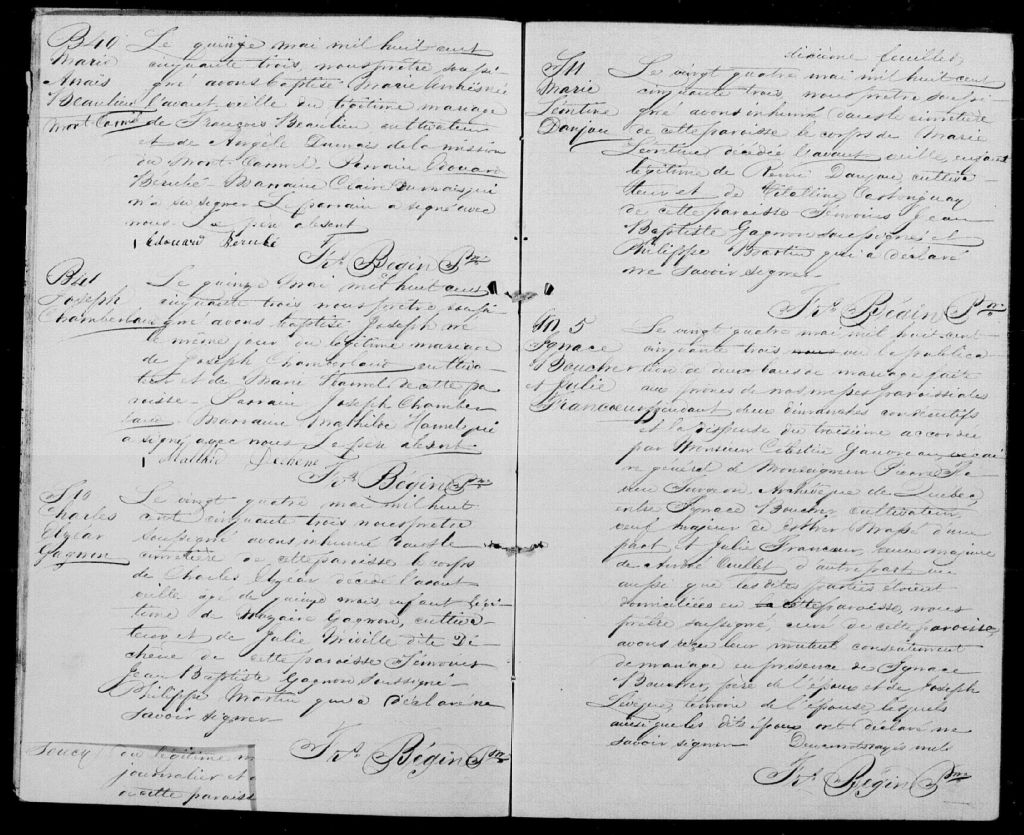 B 40 Le quinze mai mil huit cent
Marie cinquante trois, nous prêtre soussi-
Anaïs gné avons baptisé Marie
Beaulieu l'avant veille du légitime mariage
Mont Carmel de François Beaulieu, cultivateur
et de Angèle Dumais de la mission
du Mont Carmel. Parrain Edouard
Bérubé. Marraine Claire Dumais qui
n'a su signer. Le parrain a signé avec
nous. Le père absent
Edouard Berubé
Frs. Bégin Ptre
B 41 Le quinze Mai mil huit cent
Joseph cinquante trois nous prêtre soussi-
Chamberland gné avons baptisé Joseph né
le même jour du légitime mariage
de Joseph Chamberland cultiva-
teur et de Marie Hamel de cette pa-
roisse. Parrain Joseph Chamber-
land. Marraine Mathilde Hamel qui
a signé avec nous. Le père absent.
Frs. Bégin Ptre
S 10 Le vingt quatre mai mil huit
Charles cent cinquante trois nous prêtre
Elzéar soussigné avons inhumé dans le
Gagnon cimetière de cette paroisse le corps
de Charles Elzéar décédé l'avant
veille âgé de quinze mois, enfant légi-
time de Magaire Gagnon, cultiva-
teur et de Julie Miville dite Dé-
chêne de cette paroisse. Témoins
Jean Baptiste Gagnon soussigné
Philippe Martin qui a déclaré ne
savoir signer
Frs. Bégin Ptre
Soucy du légitime m
journalier et
de cette paroiss
Sixième feuillet
S 11 Le vingt quatre mai mil huit cent
Marie cinquante trois, nous prêtre soussi-
Léontine gné avons inhumé dans le cimetière
Danjou de cette paroisse le corps de Marie
Léontine décédée l'avant veille, enfant
légitime de Rémi Danjou, cultiva-
teur et de Castonguay
de cette paroisse. Témoins Jean
Baptiste Gagnon soussigné et
Philippe Martin qui a déclaré
ne savoir signer
Frs. Bégin Ptre
M 5 Le vingt quatre mai mil huit cent
Ignace cinquante trois nous vu la publica-
Boucher tion de deux bans de mariage faite
et Julie aux prônes de nos messes paroissiales
Francoeur pendant deux dimanches consécutifs
et la dispense du troisième accordée
par Monsieur Célestin Gauvreau vicai-
re général de Monseigneur Pierre Fla-
vien Turgeon, Archevêque de Québec,
entre Ignace Boucher cultivateur,
veuf majeur de Esther d'une
part et Julie Francoeur, veuve majeure
de André Ouellet d'autre part, vu
aussi que les dites parties étaient
domiciliées en la cette paroisse, nous
prêtre soussigné, curé de cette paroisse,
avons reçu leur mutuel consentement
de mariage en présence de Ignace
Boucher, père de l'époux et de Joseph
Lévêque, témoin de l'épouse, lesquels
ainsi que les dits époux ont déclaré ne
savoir signer. Deux mots rayés nuls
Frs. Bégin Ptre